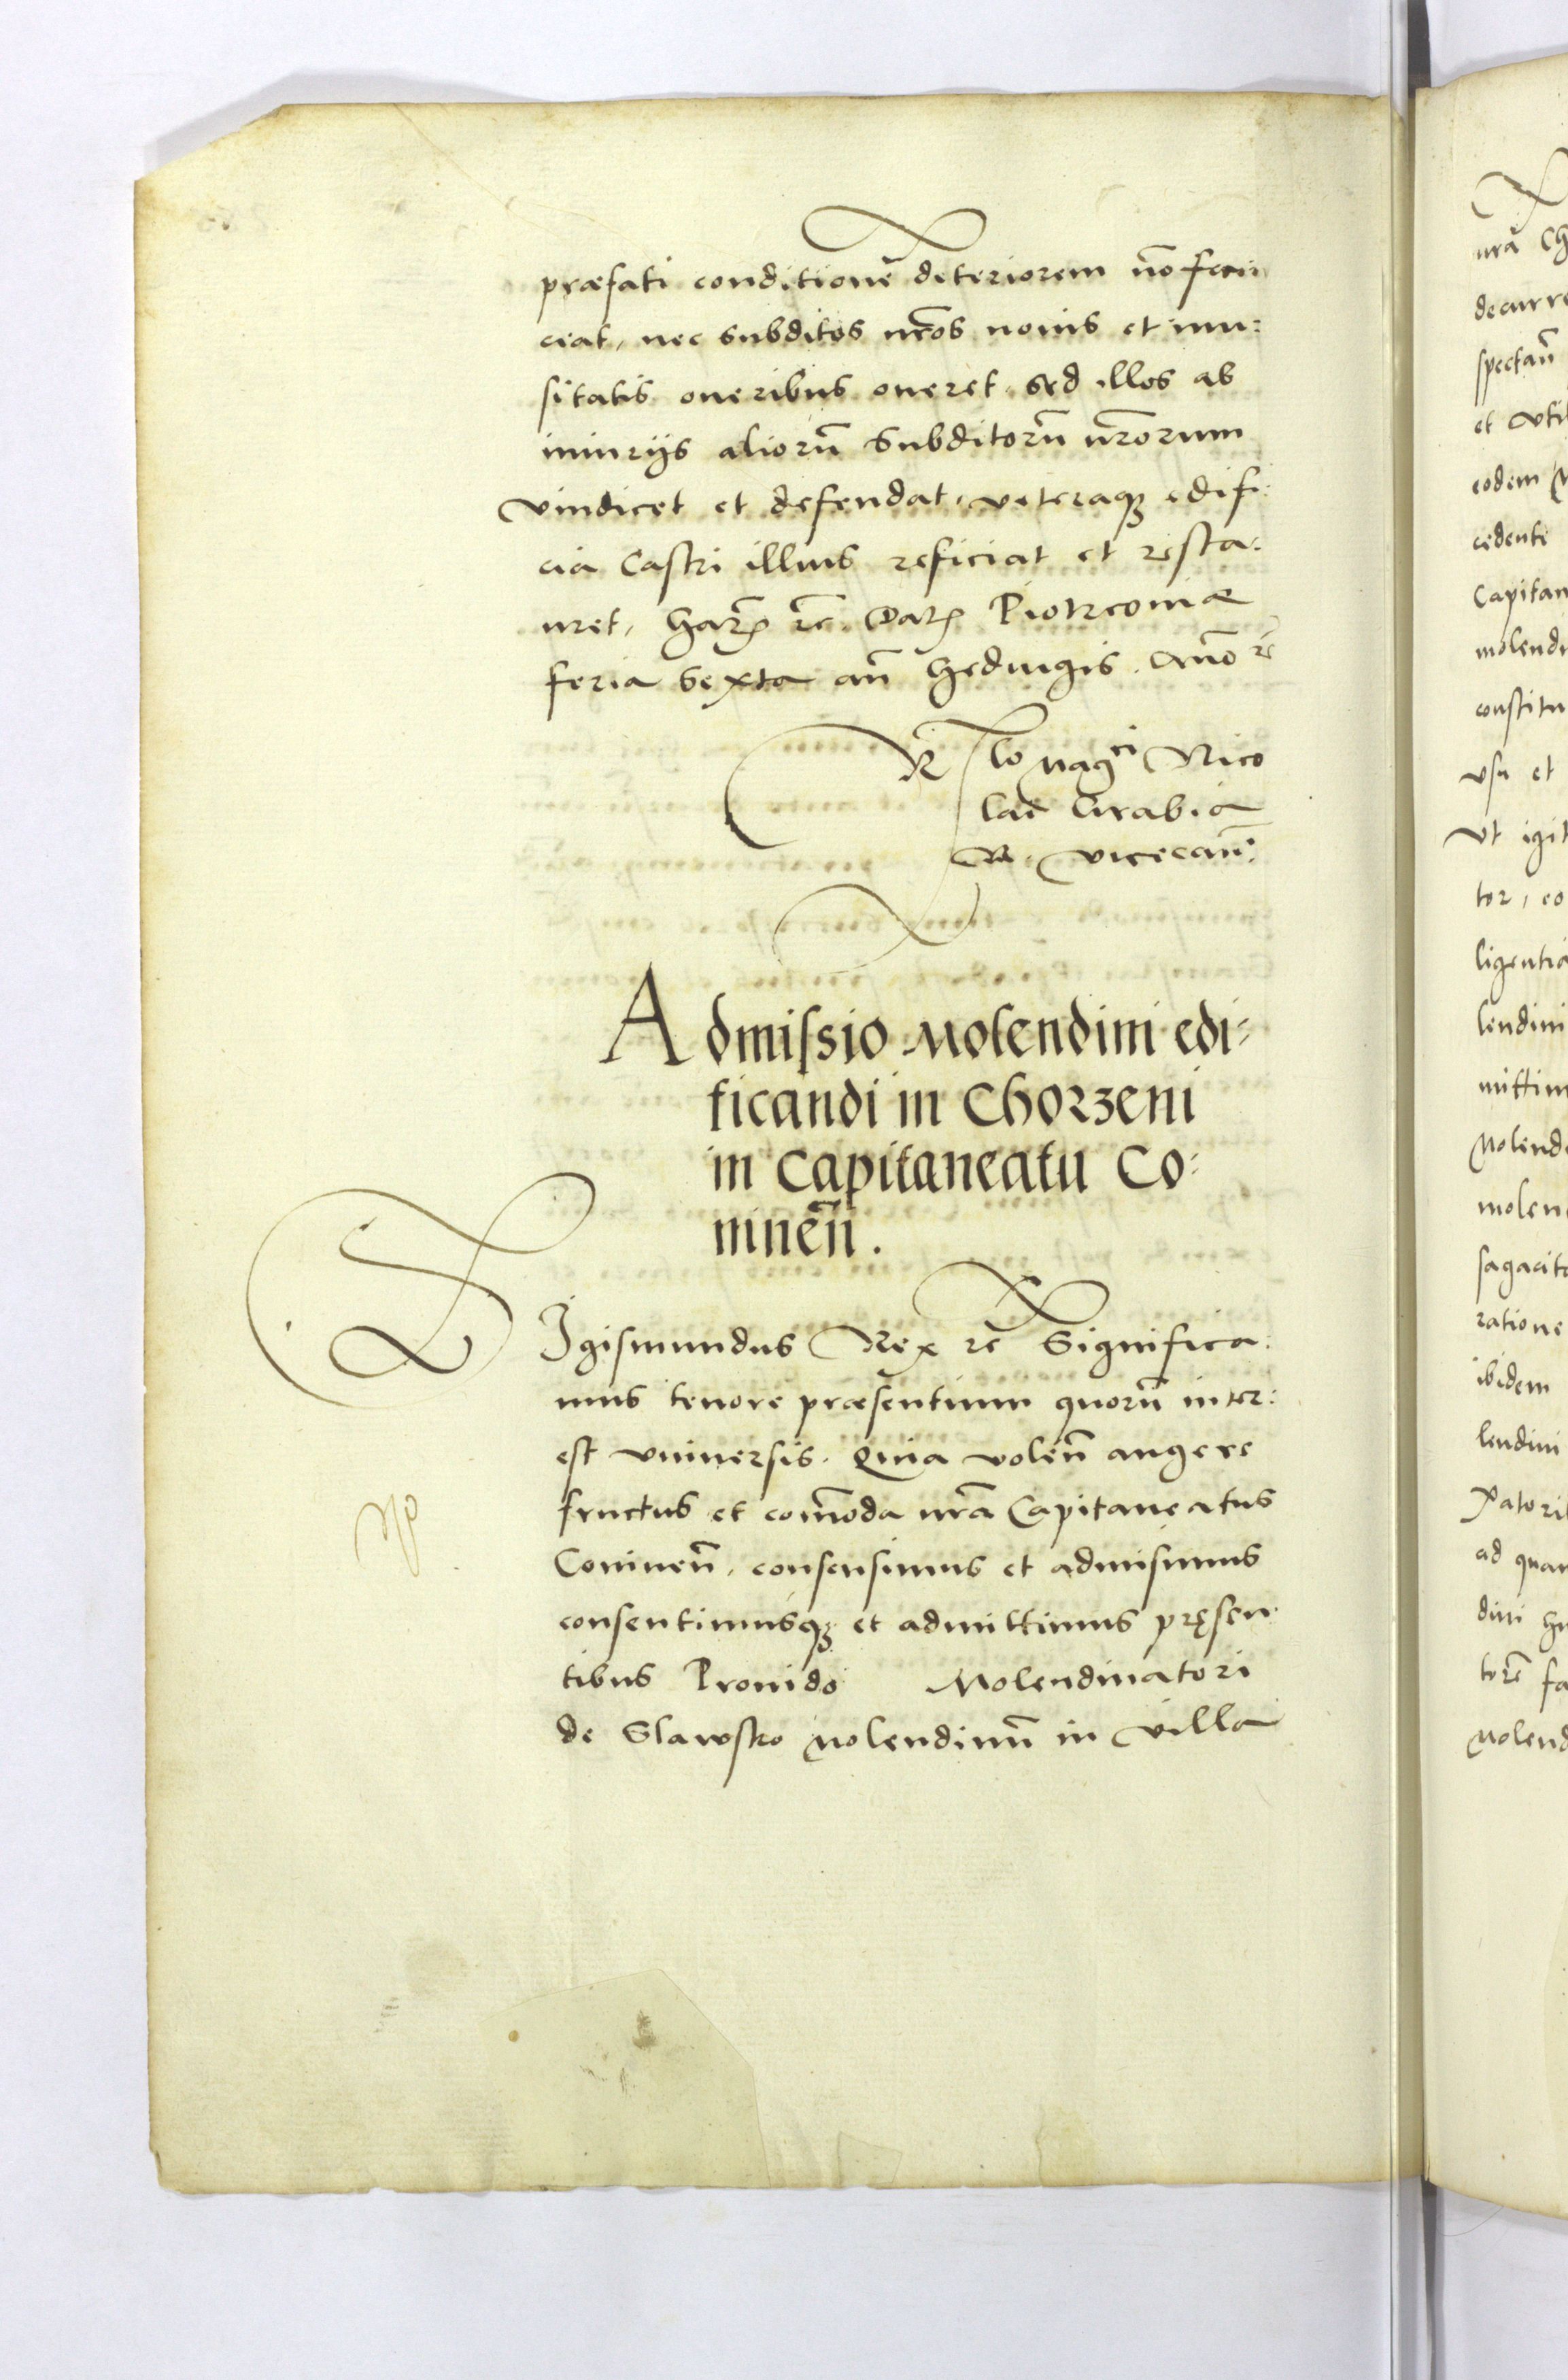 præfati conditionē deteriorem nōo faciu
ciat, nec subditos nr̃os nouis et inu:
sitatis oneribus oneret, sed illos ab
iniuriis aliorū subditorū nr̃orum
vindicet et defendat, veteraq; edifi:
cia Castri illius reficiat et resta:
uret, Harꝝ rc̄ Datꝝ Piotrconiæ
feria Sexta an̄ Hedwigis, Anno rc̄
Rlo Magci Nico
lai Grabia
R. vicecan̄:
Admissio Molendini edi:
ficandi in Chorzeni
in Capitaneatu Co:
ninen̄.
SIgismundus Rex rc̄ Significa:
mus tenore præsentium quorū inter:
est vniuersis. Quia volen̄ augere
fructus et com̄oda nr̃a Capitaneatus
Coninen̄, consensimus et admisimus
consentimusq; et admittimus pręsen
tibus Prouido Molendinatori
de Slawsko Molendinū in villa
nr̃a Ch
decurre
spectan̄
et vti
eodem
cedente
Capitan
molendi
constitu
vsu et
Vt igit
tor, co
ligentia
lendini
mittim
Molend
molen
sagacit
ratione
ibidem
lendini
ad quam
dini
torē fa
Molend